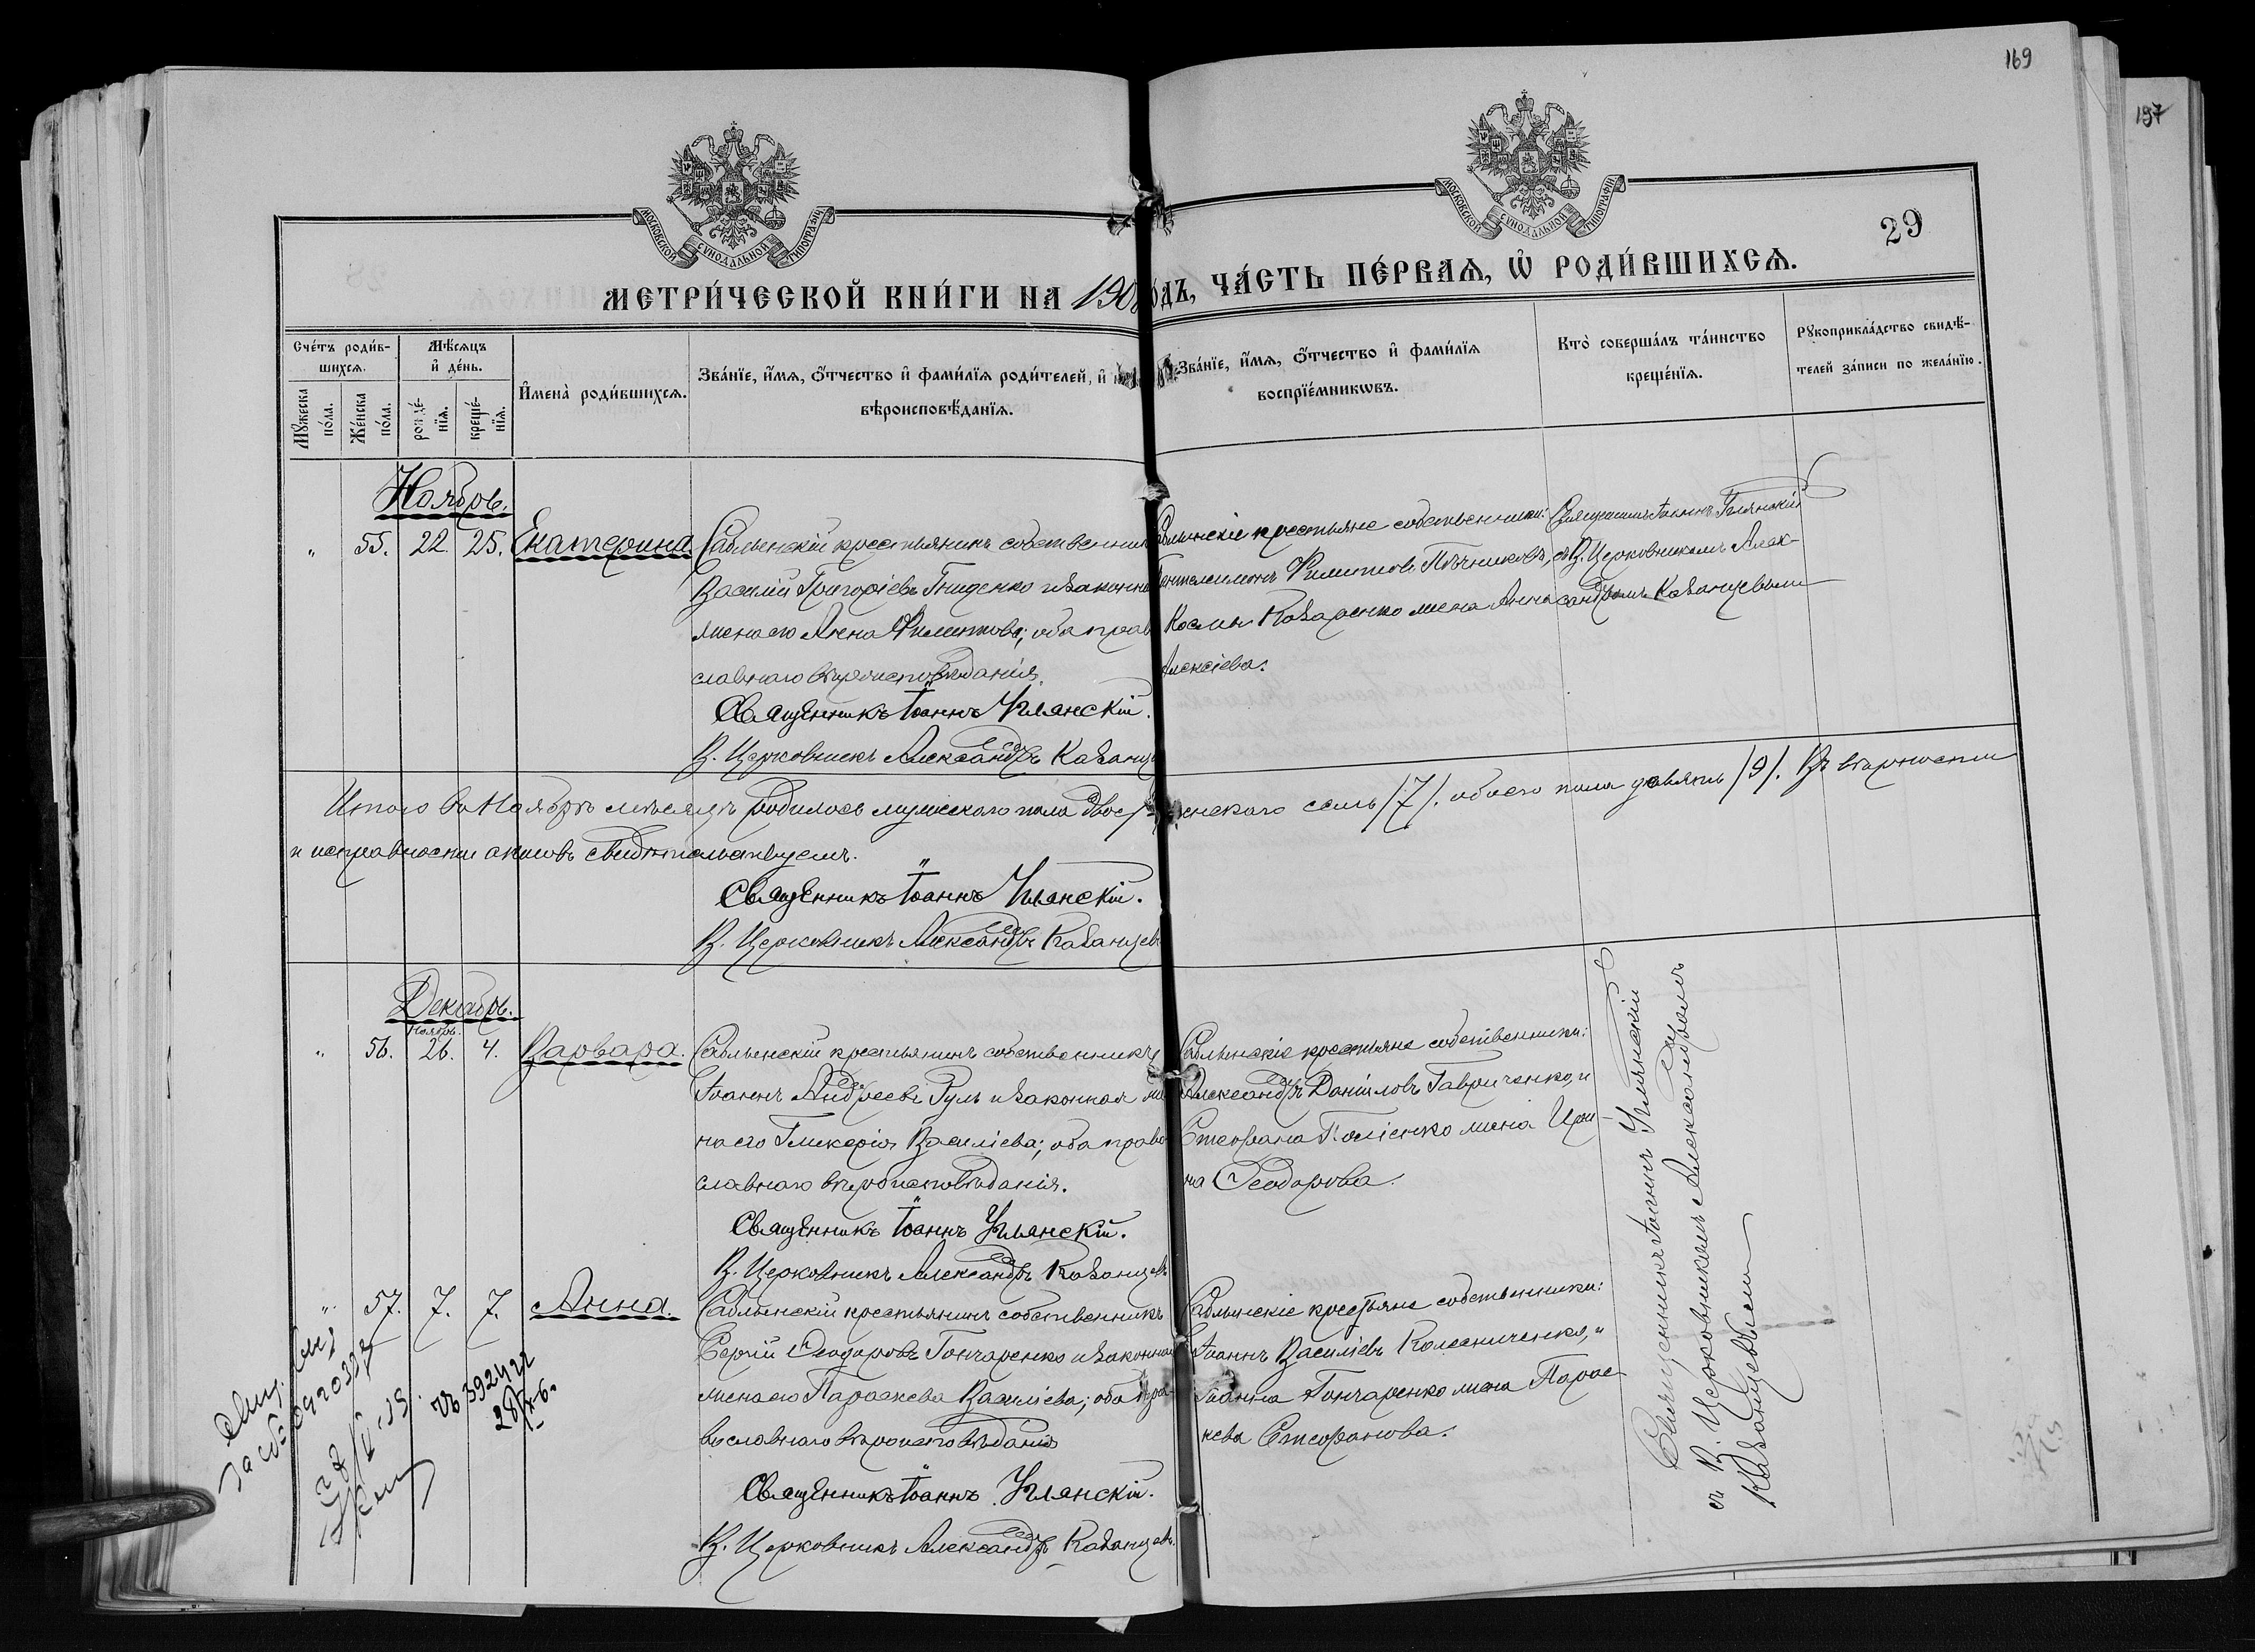 169
197
29
МОСКОВСКОЙ СУНОДАЛЬНОЙ ТИПОГРАФІИ
МОСКОВСКОЙ СУНОДАЛЬНОЙ ТИПОГРАФІИ
МЕТРИ́ЧЕСКОЙ КНИ́ГИ НА 190 ГОДЪ, ЧА́СТЬ ПЕ́РВАЯ, Ѡ҆ РОДИ́ВШИХСЯ.
Сче́тъ роди́в-
шихся.
Мѣ́сяцъ
и҆ де́нь.
Мꙋ́жеска по́ла.
Же́нска по́ла.
рожде́-
нїя.
креще́-
нїя.
И҆мена̀ роди́вшихся.
Зва́нїе, и҆́мя, ѻ҆́тчество и҆ фами́лїя роди́телей, и҆
вѣроисповѣ́данїя.
Зва́нїе, и҆́мя, ѻ҆́тчество и҆ фами́лїя
воспрїе́мникѡвъ.
Кто̀ соверша́лъ та́инство
креще́нїя.
Рꙋкоприкла́дство свидѣ́-
телей за́писи по жела́нїю.
Ноябрь.
" 55. 22. 25. Екатерина
Саблынскій крестьянинъ собственник
Василій Григоріевъ Гниденко и законна
жена его Анна Филиппова; оба прав
славнаго вѣроисповѣданія.
Священникъ Іоаннъ Углянскій.
В. Церковникъ Александръ Казанце
Саблынскіе крестьяне собственники:
Пантелеимонъ Филипповъ Пѣчниковъ,
Космы Назаренко жена Анна
Алексіева.
Священникъ Іоаннъ Углянскій
съ В. Церковникомъ Алек-
сандромъ Казанцевымъ
Итого въ Ноябрѣ мѣсяцѣ родилось мужескаго пола двое женскаго семь /7/. обоего пола девять /9/. Въ вѣрности
и исправности актовъ свидѣтельствуемъ.
Священникъ Іоаннъ Углянскій.
В. Церковникъ Александръ Казанцевъ
Декабрь.
Ноябрь.
" 56. 26. 4. Варвара.
Саблынскій крестьянинъ собственникъ
Іоаннъ Андреевъ Руль и законная же
на его Гликерія Василіева; оба право
славнаго вѣроисповѣданія.
Священникъ Іоаннъ Углянскій.
В. Церковникъ Александръ Казанцевъ
Саблынскіе крестьяне собственники:
Александръ Даніиловъ Гавриченко, и
Стефана жена Ири-
на Ѳеодорова.
" 57. 7. 7. Анна.
Саблынскій крестьянинъ собственникъ
Сергій Ѳеодоровъ Гончаренко и законная
жена его Параскева Василіева; оба пра-
вославнаго вѣроисповѣданія
Священникъ Іоаннъ Углянскій.
В. Церковникъ Александръ Казанцевъ.
Саблынскіе крестьяне собственники:
Іоаннъ Василіевъ Колесниченко, и
Іоанна Гончаренко жена Парас-
кева Стефанова.
Священникъ Іоаннъ Углянскій
съ В. Церковникомъ Александромъ
Казанцевымъ
392422